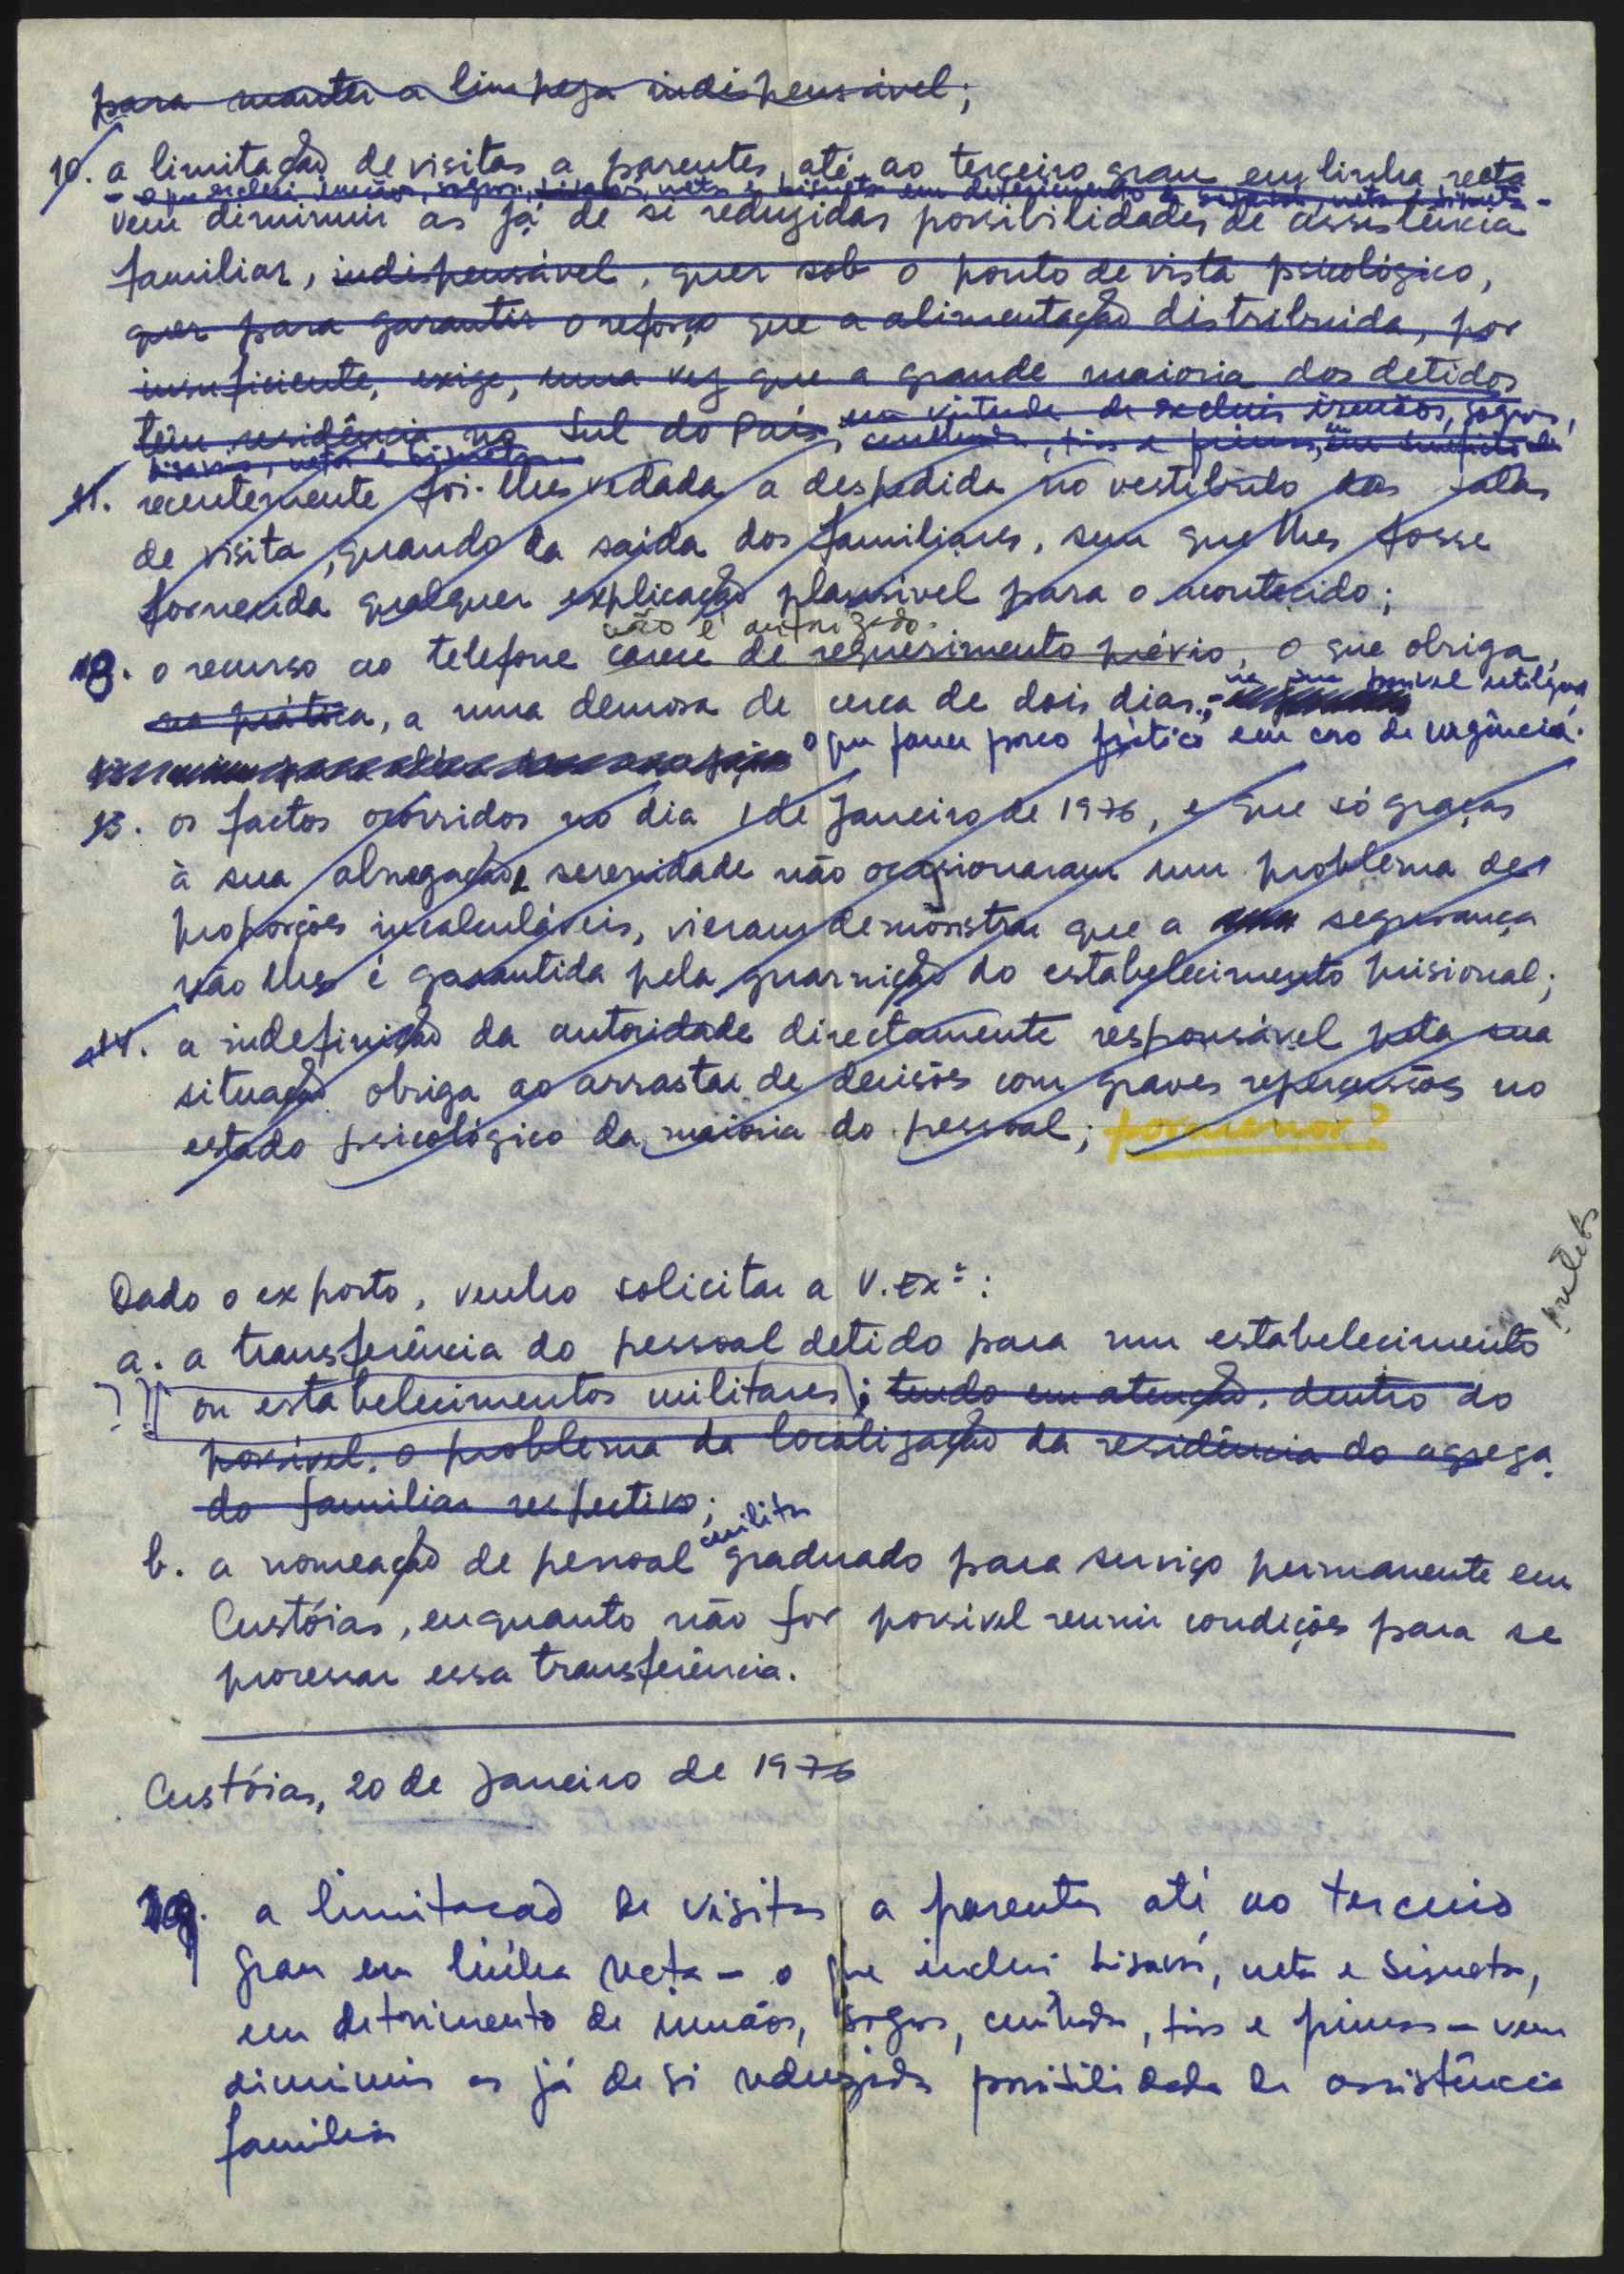 para manter a limpeza indispensável;
10. a limitação de visitas a parentes, até ao terceiro grau em linha recta
- o que exclui irmãos, sogros, bisavós, neto e bisneto em
vem diminuir as já de si reduzidas possibilidades de assistência
familiar, indispensável, quer sob o ponto de vista psicológico,
quer para garantir o reforço que a alimentação distribuída, por
insuficiente, exige, uma vez que a grande maioria dos detidos
têm residência no Sul do País, em virtude de excluir irmãos, sogros,
cunhados, tios e primos, em
bisavós, neto e bisneto
11. recentemente foi-lhes vedada a despedida no vestíbulo das salas
de visita, quando da saída dos familiares, sem que lhes fosse
fornecida qualquer explicação plausível para o acontecido;
não é autorizado.
8. o recurso ao telefone carece de requerimento prévio, o que obriga,
na prática, a uma demora de cerca de dois dias,
possível utilizar
o que parece pouco prático em caso de urgência.
13. os factos ocorridos no dia 1 de Janeiro de 1976, e que só graças
à sua abnegação e serenidade não ocasionaram um problema de
proporções incalculáveis, vieram demonstrar que a segurança
não lhes é garantida pela guarnição do estabelecimento prisional;
14. a indefinição da autoridade directamente responsável pela sua
situação obriga ao arrastar de decisões com graves repercussões no
estado psicológico da maioria do pessoal; pormenor?
Dado o exposto, venho solicitar a V. Exª:
a. a transferência do pessoal detido para um estabelecimento
ou estabelecimentos militares; tendo em atenção, dentro do
possível, o problema da localização da residência do agrega-
do familiar respectivo;
militar
b. a nomeação de pessoal graduado para serviço permanente em
Custóias, enquanto não for possível reunir condições para se
processar essa transferência.
Custóias, 20 de Janeiro de 1976
9. a limitação de visitas a parentes até ao terceiro
grau em linha recta - o que inclui bisavós, neto e bisneto,
em detrimento de irmãos, sogros, cunhados, tios e primos - vem
diminuir as já de si reduzidas possibilidades de assistência
familiar